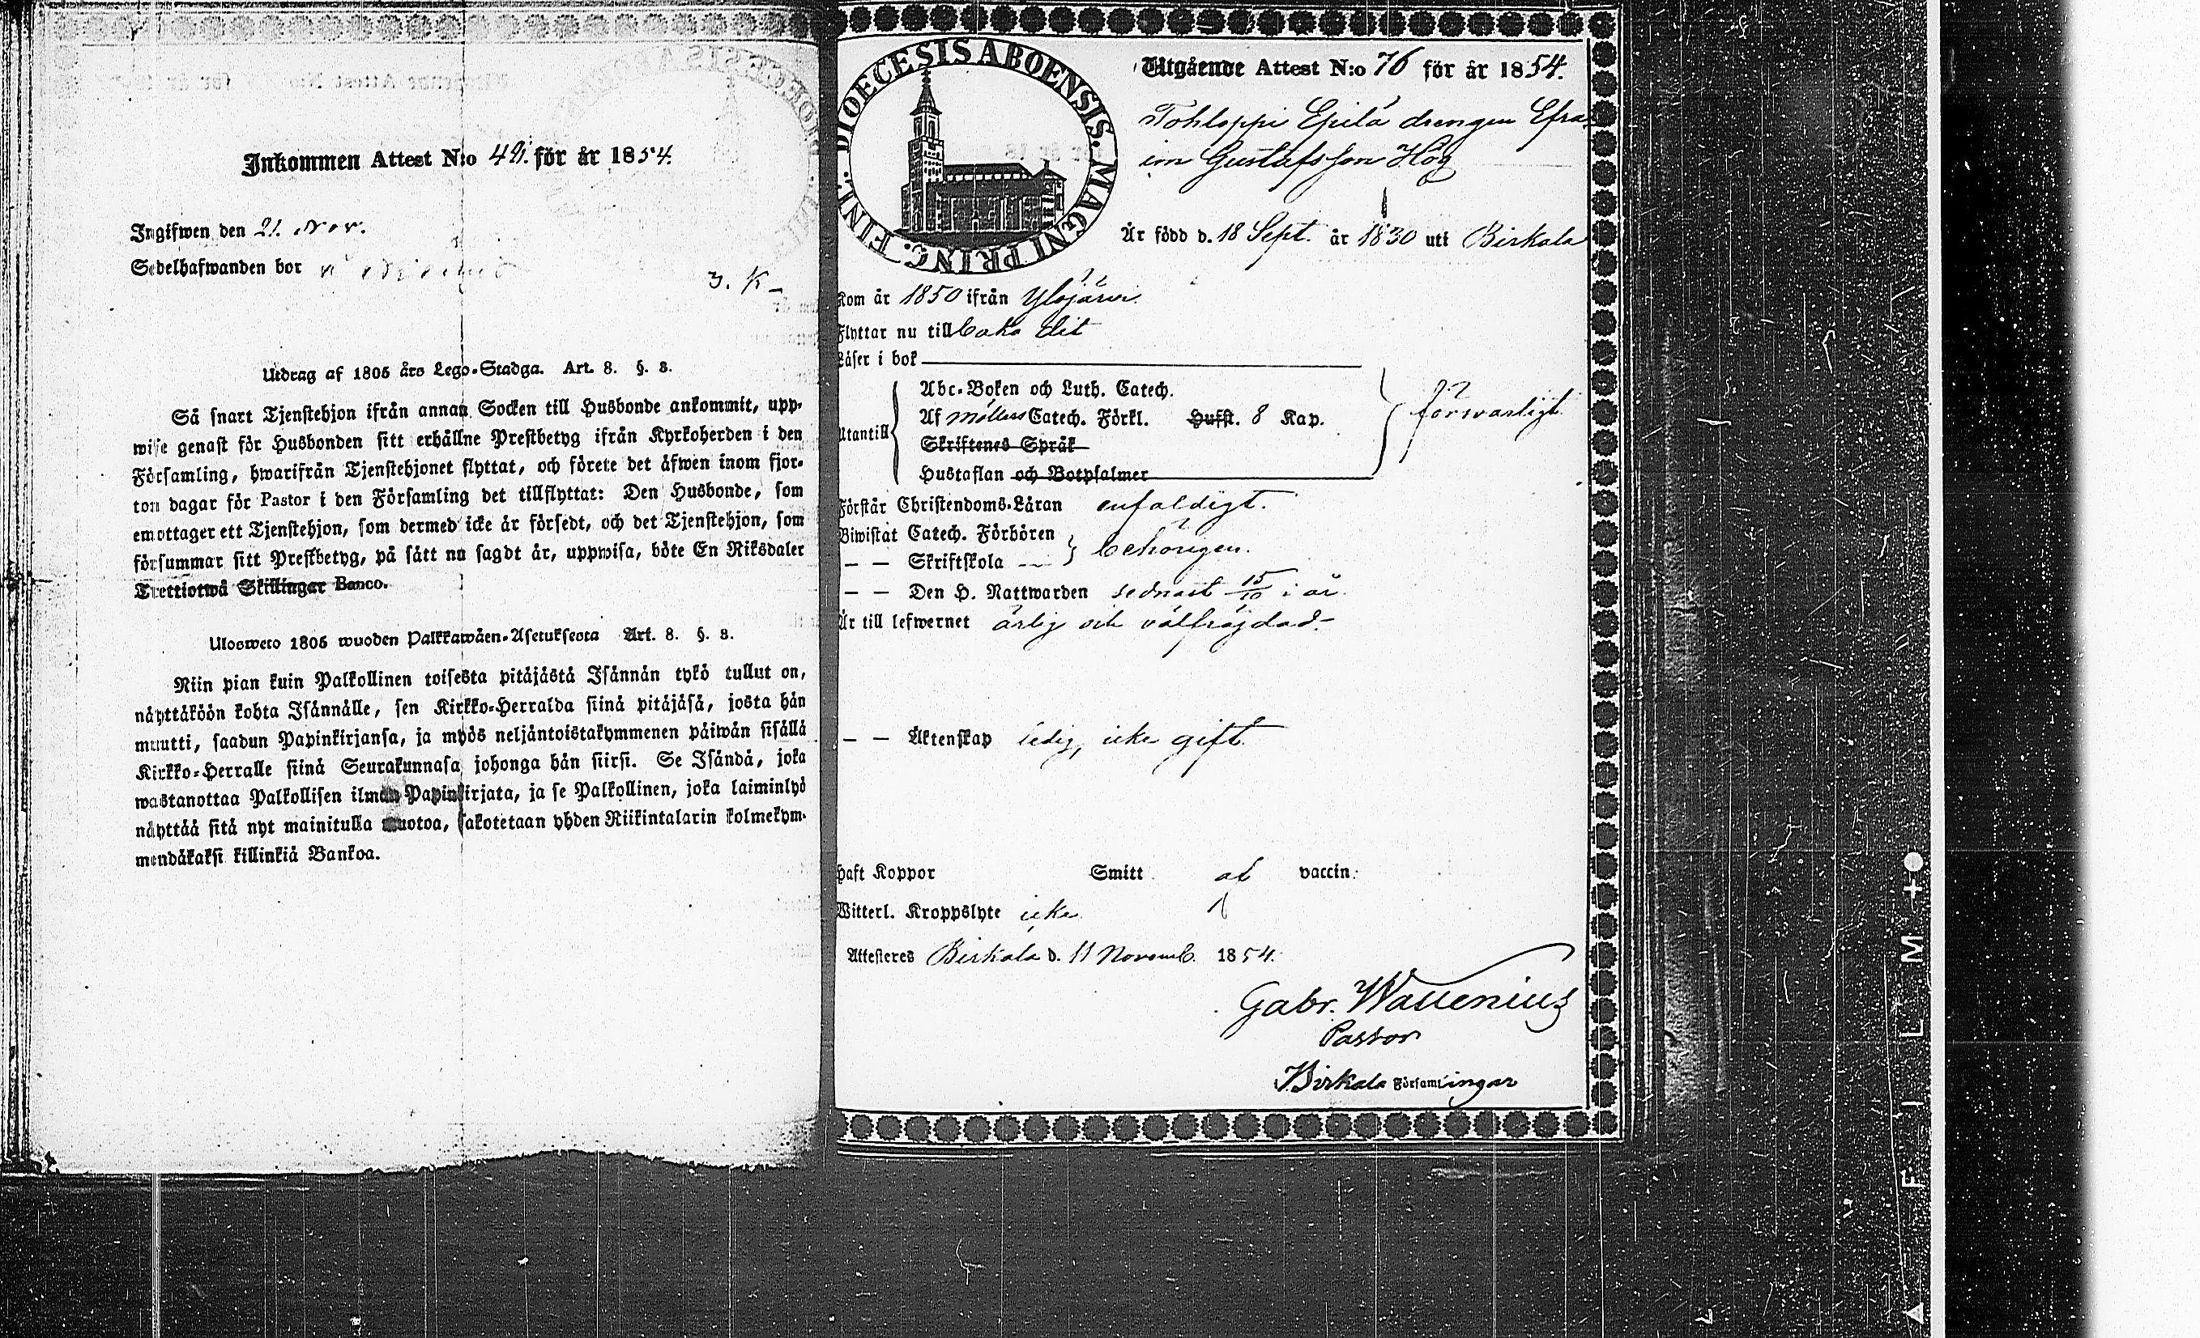 Inkommen Attest N:o 42. för år 1854.
Ingifwen den 21. Nov.
Sedelhafwanden bor
Utdrag af 1805 års Lego-Stadga. Art. 8. §. 8.
Så snart Tjenstehjon ifrån annan Socken till Husbonde ankommit, upp-
wise genast för Husbonden sitt erhållne Prestbetyg ifrån Kyrkoherden i den
Församling, hwarifrån Tjenstehjonet flyttat, och förete det åfwen inom fjor-
ton dagar för Pastor i den Församling det tillflyttat: Den Husbonde, som
emottager ett Tjenstehjon, som dermed icke är försedt, och det Tjenstehjon, som
försummar sitt Prestbetyg, på sått nu sagdt år, uppwisa, böte En Riksdaler
Trettiotwå Skillingar Banco.
Ulosweto 1805 wuoden Palkkawäen-Asetuksesta Art. 8. §. 8.
Niin pian kuin Palkollinen toisesta pitäjästä Isännän tykö tullut on,
näyttäköön kohta Isännälle, sen Kirkko-Herralda siinä pitäjäsä, josta hän
muutti, saadun Papinkirjansa, ja myös neljäntoistakymmenen päiwän sisällä
Kirkko-Herralle siinä Seurakunnasa johonga hän siirsi. Se Isändä, joka
wastanottaa Palkollisen ilman Papinkirjata, ja se Palkollinen, joka laiminlyö
näyttää sitä nyt mainitulla muotoa, sakotetaan yhden Riikintalarin kolmekym-
mendäkaksi killinkiä Bankoa.
DIOECESIS ABOENSIS. MAGNI PRINC. FINL.
Utgående Attest N:o 76 för år 1854.
Tohloppi Epilä drengen Efra
im Gustafsson Hög
Är född d. 18 Sept. år 1830 uti Birkala
Kom år 1850 ifrån Ylöjärvi
Flyttar nu tillbaka dit
Läser i bok
Abc-Boken och Luth. Catech.
Utantill Af Möllers Catech. Förkl. Husst. 8 Kap. försvarligt
Skriftenes Språk
Hustaflan och Botpsalmer
Förstår Christendoms-Läran enfaldigt.
Biwistat Catech. Förhören
— — Skriftskola behörigen.
— — Den H. Nattwarden sednast 15/10 i år
Är till lefwernet ärlig och välfrägdad
— — Äktenskap ledig, icke gift
Haft Koppor Smitt af vaccin:
Witterl. Kroppslyte icke
Attesteres Birkala d. 11 Novemb. 1854.
Gabr. Wallenius
Pastor
Birkala Församlingar
FILM